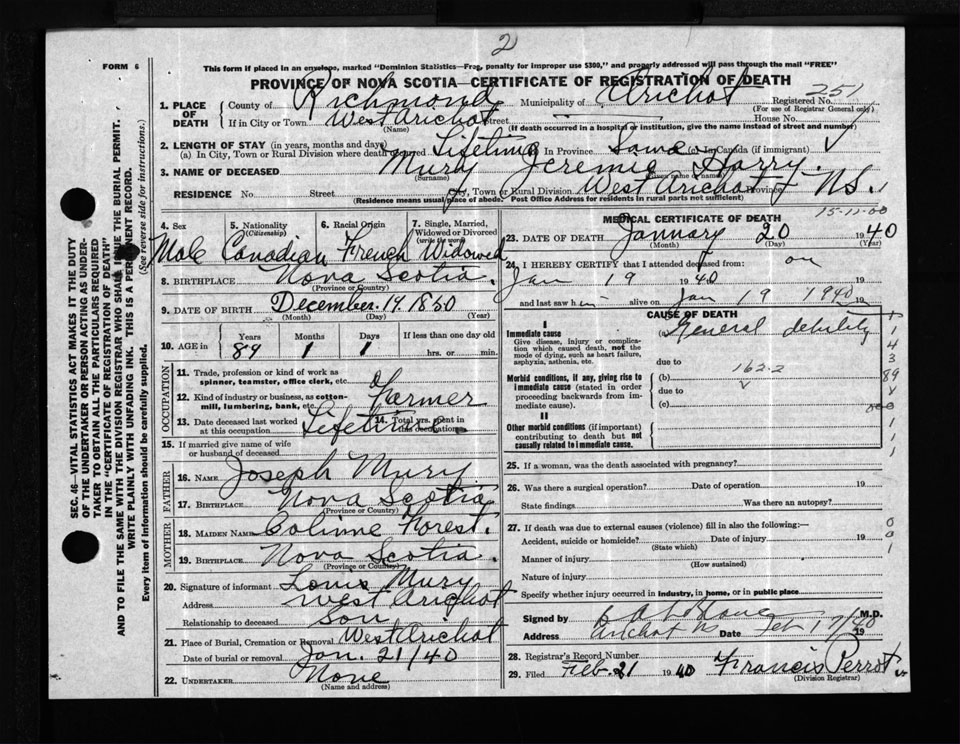 2
FORM 6
This form if placed in an envelope, marked "Dominion Statistics—Free, penalty for improper use $300," and properly addressed will pass through the mail "FREE"
PROVINCE OF NOVA SCOTIA—CERTIFICATE OF REGISTRATION OF DEATH
1. PLACE OF DEATH County of Richmond Municipality of Arichat Registered No. 251
(For use of Registrar General only)
If in City or Town West Arichat Street House No.
(Name) (If death occurred in a hospital or institution, give the name instead of street and number)
2. LENGTH OF STAY (in years, months and days)
(a) In City, Town or Rural Division where death occurred Lifetime In Province Same In Canada (if immigrant)
3. NAME OF DECEASED Mury Jeremie Harry.
(Surname)
RESIDENCE No. Street City, Town or Rural Division West Arichat Province N.S.
(Residence means usual place of abode. Post Office Address for residents in rural parts not sufficient)
4. Sex 5. Nationality (Citizenship) 6. Racial Origin 7. Single, Married, Widowed or Divorced (write the word)
Male Canadian French Widowed
8. BIRTHPLACE Nova Scotia.
(Province or Country)
9. DATE OF BIRTH December. 19. 1850
(Month) (Day) (Year)
10. AGE in Years Months Days If less than one day old
89 1 1 hrs. or min.
OCCUPATION
11. Trade, profession or kind of work as spinner, teamster, office clerk, etc.
12. Kind of industry or business, as cotton-mill, lumbering, bank, etc. Farmer
13. Date deceased last worked at this occupation Lifetime 14. Total yrs. spent in this occupation
15. If married give name of wife or husband of deceased
FATHER
16. NAME Joseph Mury
17. BIRTHPLACE Nova Scotia
(Province or Country)
MOTHER
18. MAIDEN NAME Colinne Forest.
19. BIRTHPLACE Nova Scotia.
(Province or Country)
20. Signature of informant Louis Mury
Address West Arichat
Relationship to deceased Son
21. Place of Burial, Cremation or Removal West Arichat
Date of burial or removal Jan. 21/40
22. UNDERTAKER None
(Name and address)
MEDICAL CERTIFICATE OF DEATH
23. DATE OF DEATH January 20 1940
(Month) (Day) (Year)
24. I HEREBY CERTIFY that I attended deceased from: on
Jan 19 1940
and last saw him alive on Jan 19 1940 19
CAUSE OF DEATH
I
Immediate cause (a) General debility
Give disease, injury or complication which caused death, not the mode of dying, such as heart failure, asphyxia, asthenia, etc.
due to
Morbid conditions, if any, giving rise to immediate cause (stated in order proceeding backwards from immediate cause). (b) 162-2
due to
(c)
II
Other morbid conditions (if important) contributing to death but not causally related to immediate cause.
25. If a woman, was the death associated with pregnancy?
26. Was there a surgical operation? Date of operation 19
State findings Was there an autopsy?
27. If death was due to external causes (violence) fill in also the following:—
Accident, suicide or homicide? Date of injury 19
(State which)
Manner of injury
(How sustained)
Nature of injury
Specify whether injury occurred in industry, in home, or in public place
Signed by M.D.
Address Arichat Date Feb 17/40 19
28. Registrar's Record Number
29. Filed Feb. 21 1940 Francis Perrot
(Division Registrar)
SEC. 46—VITAL STATISTICS ACT MAKES IT THE DUTY
OF THE UNDERTAKER OR PERSON ACTING AS UNDER-
TAKER TO OBTAIN ALL THE PARTICULARS REQUIRED
IN THE "CERTIFICATE OF REGISTRATION OF DEATH"
AND TO FILE THE SAME WITH THE DIVISION REGISTRAR WHO SHALL ISSUE THE BURIAL PERMIT.
WRITE PLAINLY WITH UNFADING INK. THIS IS A PERMANENT RECORD.
Every item of information should be carefully supplied. (See reverse side for instructions.)